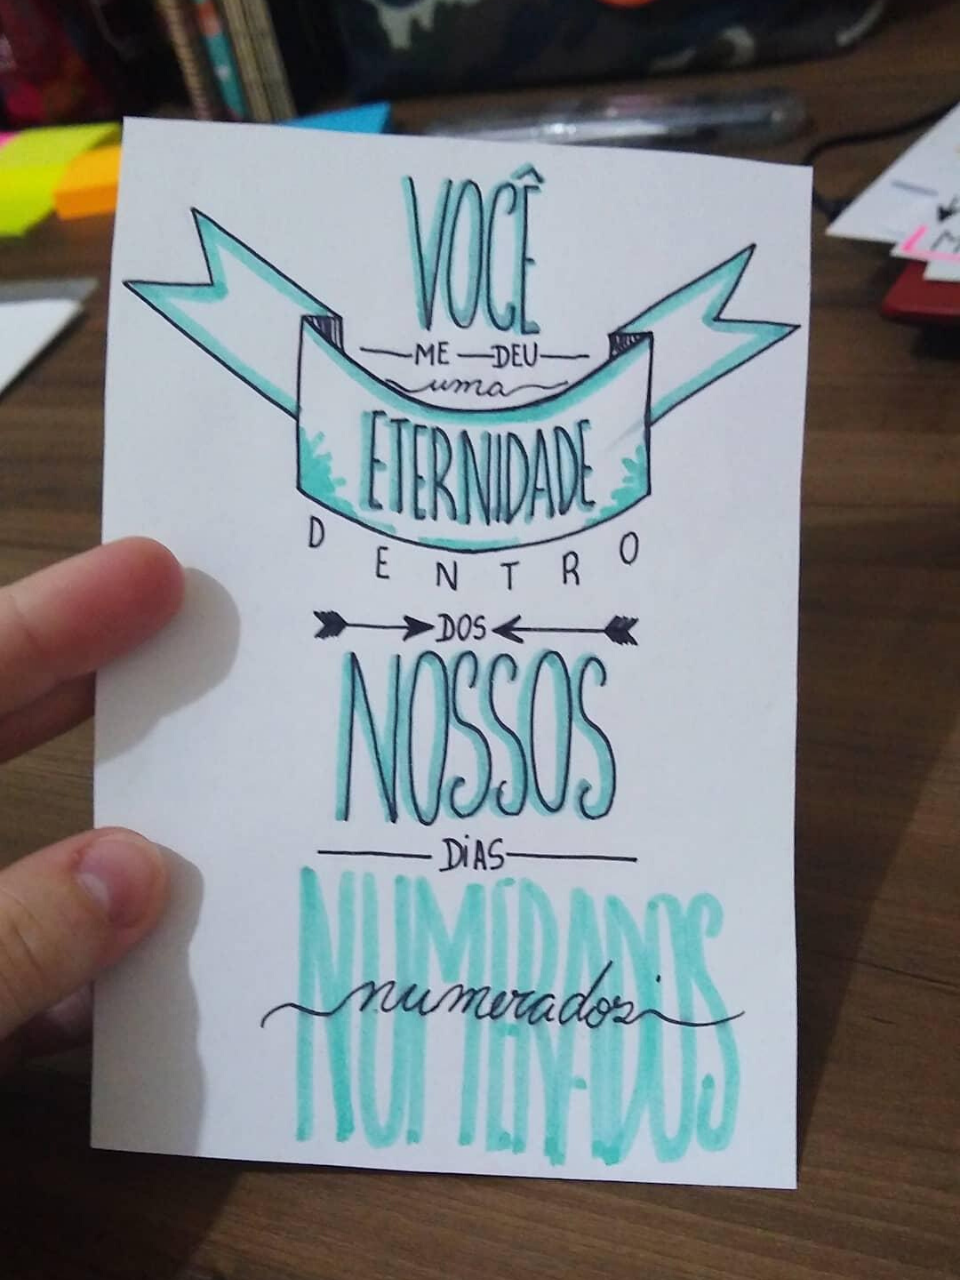 VOCÊ
ME DEU
uma
ETERNIDADE
DENTRO
DOS
NOSSOS
DiAS
NUMERADOS
numerados